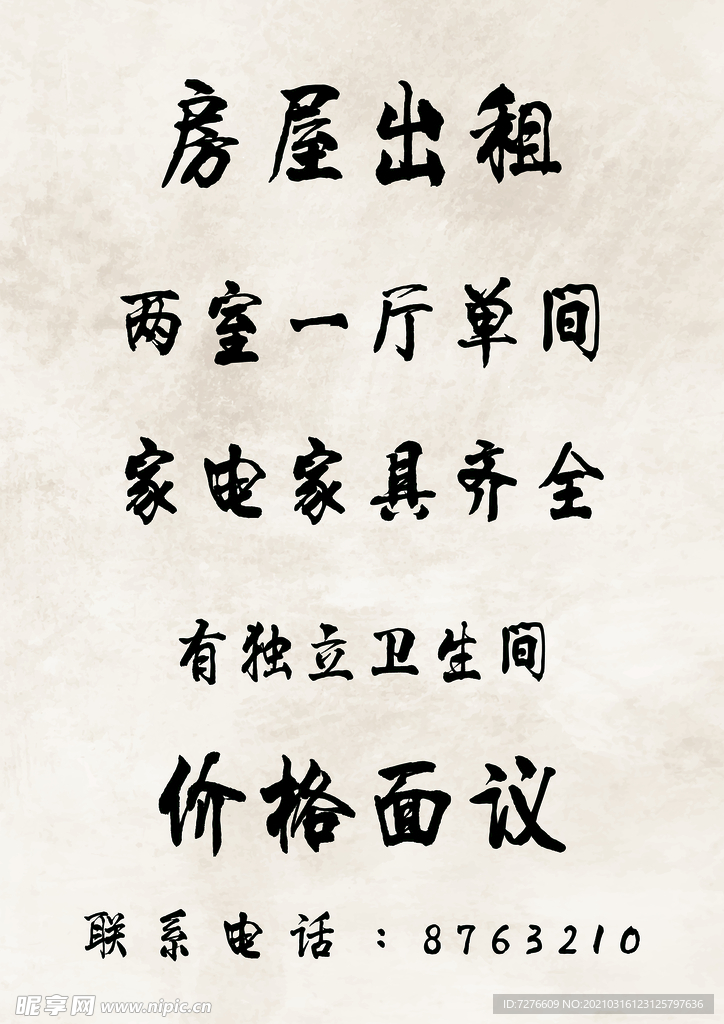 房屋出租
两室一厅单间
家电家具齐全
有独立卫生间
价格面议
联系电话：8763210
昵享网 www.nipic.cn
ID:7276609 NO:20210316123125797636